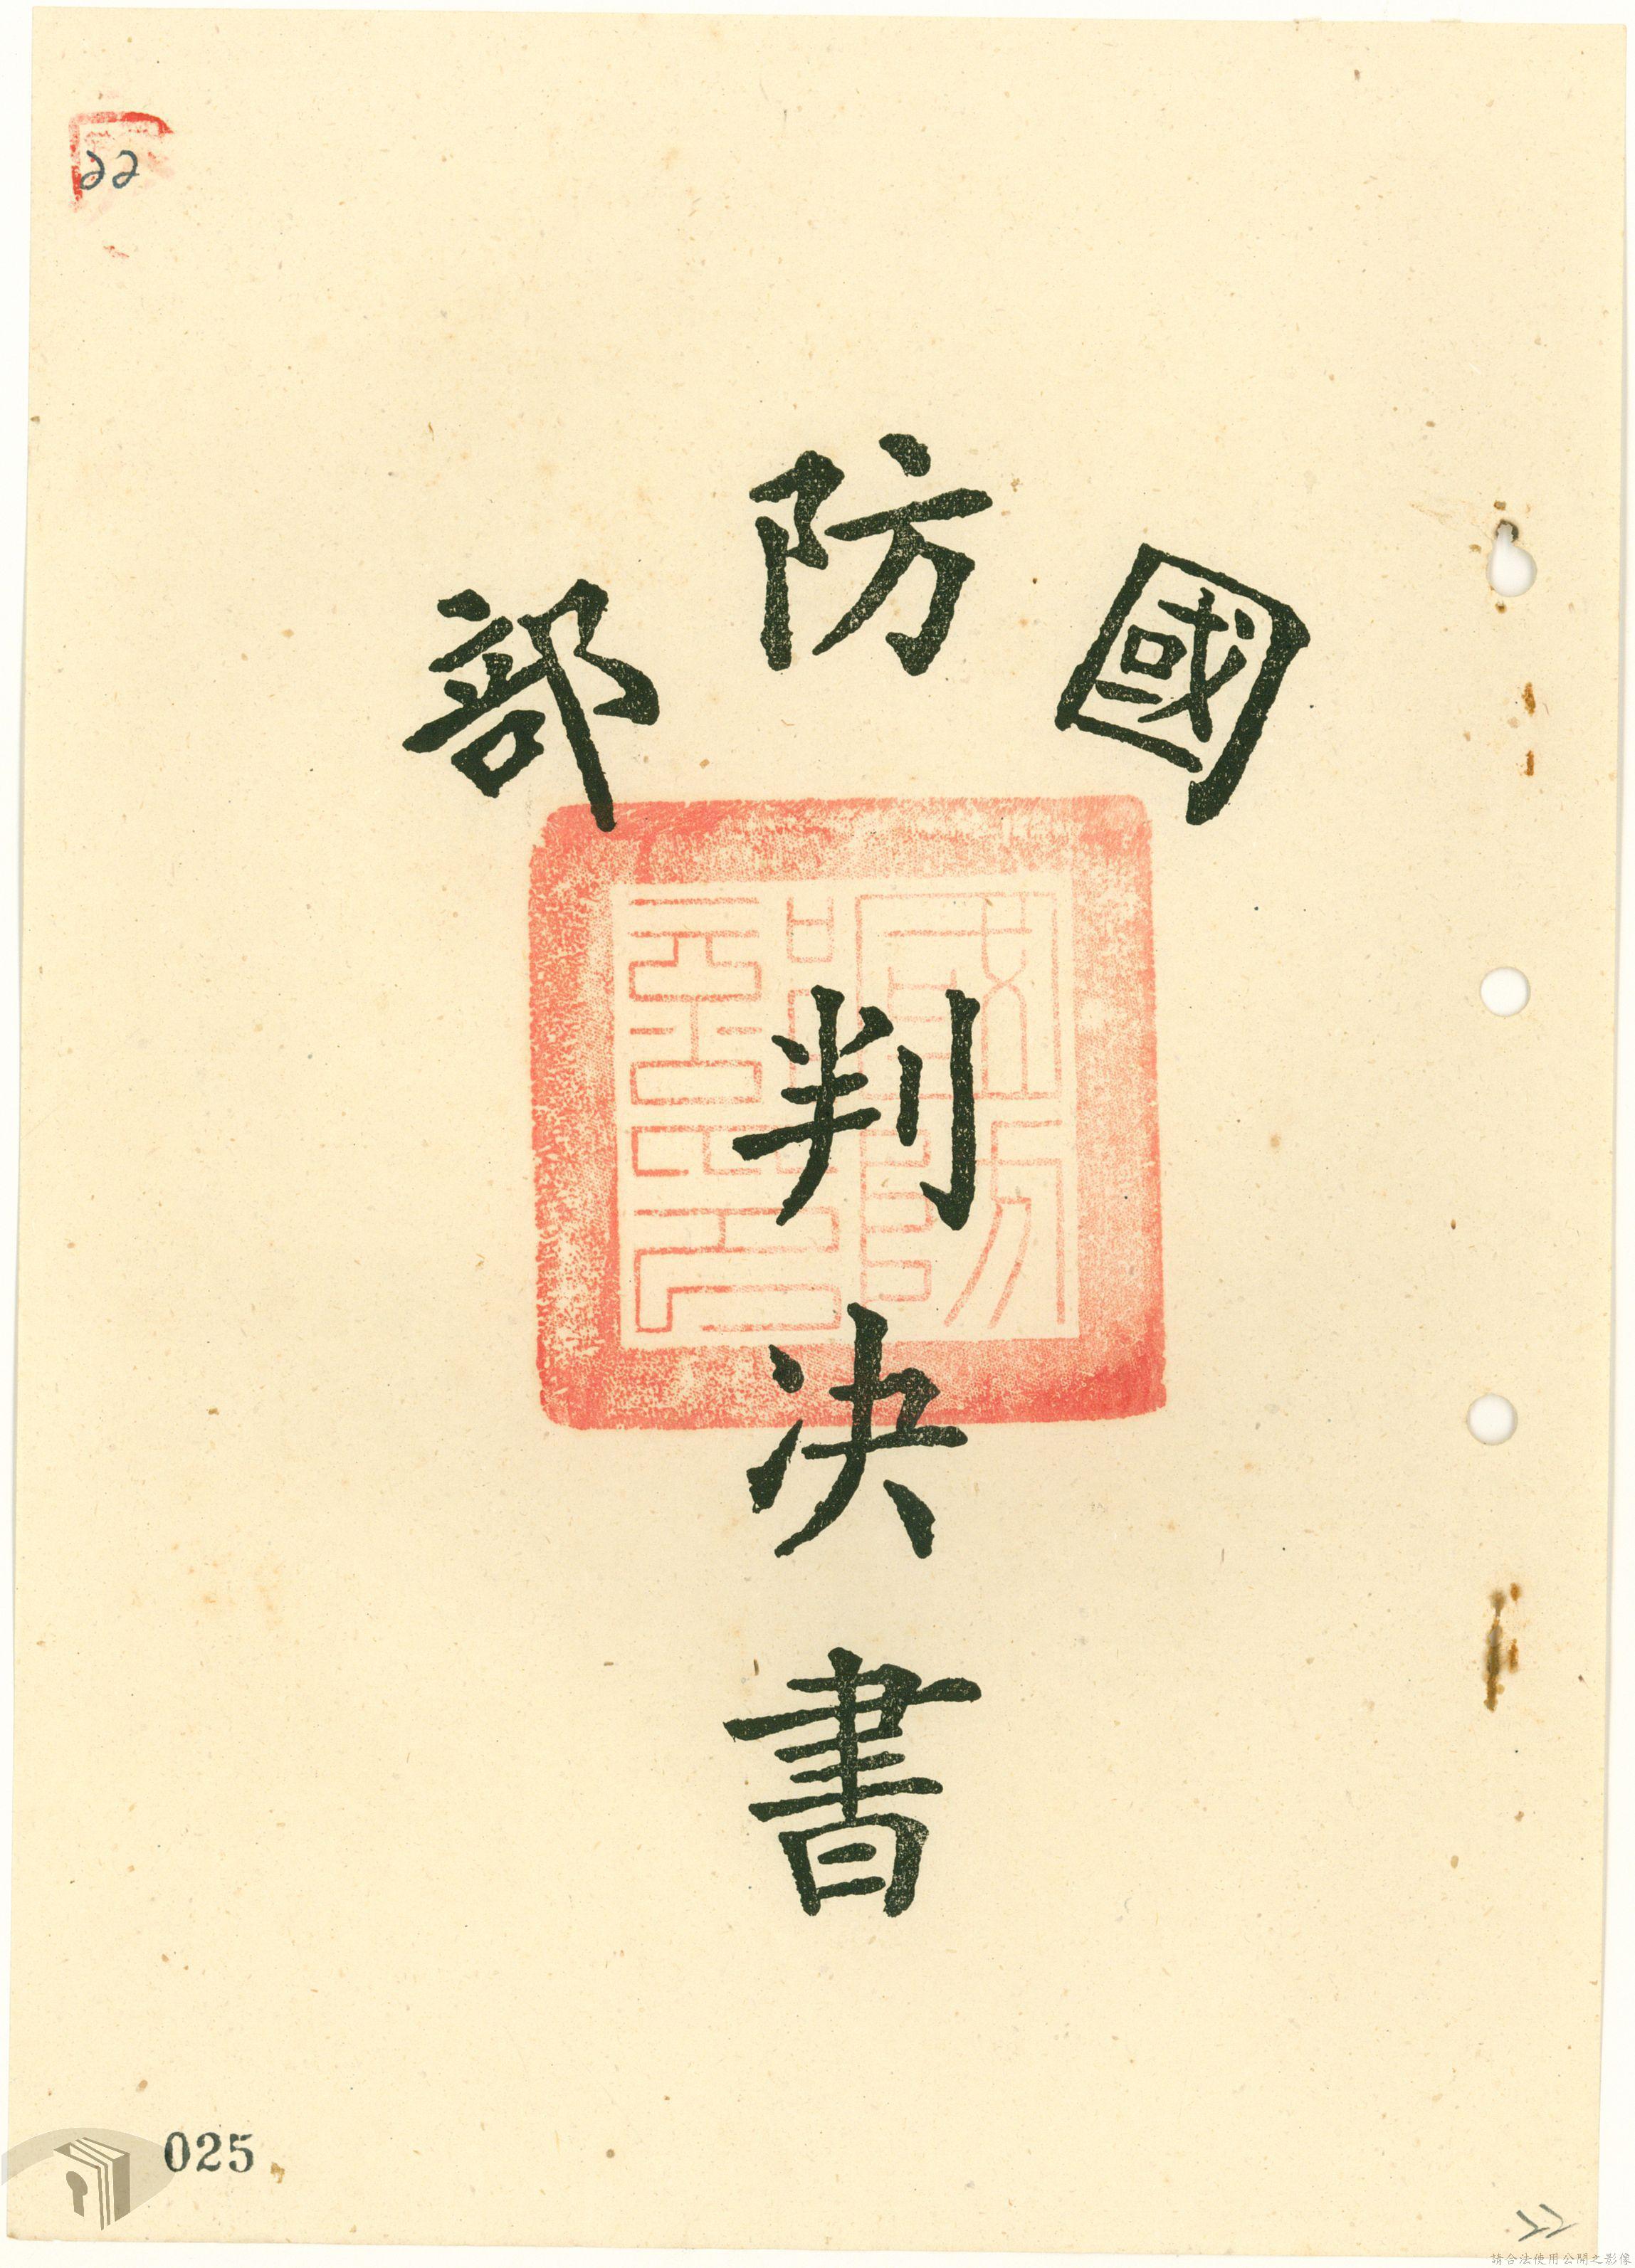 22
國防部
判決書
國防部印
025
22
請合法使用公開之影像